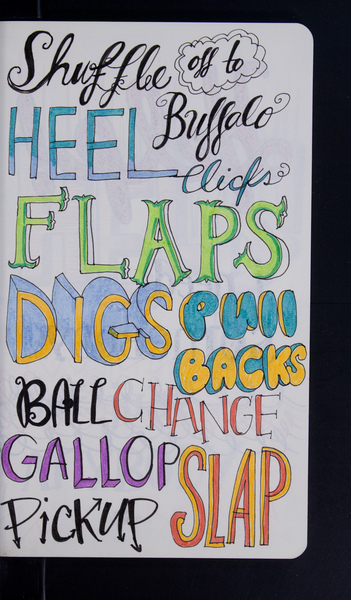 Shuffle off to
Buffalo
HEEL
clicks
FLAPS
DIGS PUll
BACKS
BALL CHANGE
GALLOP
SLAP
PiCKUP